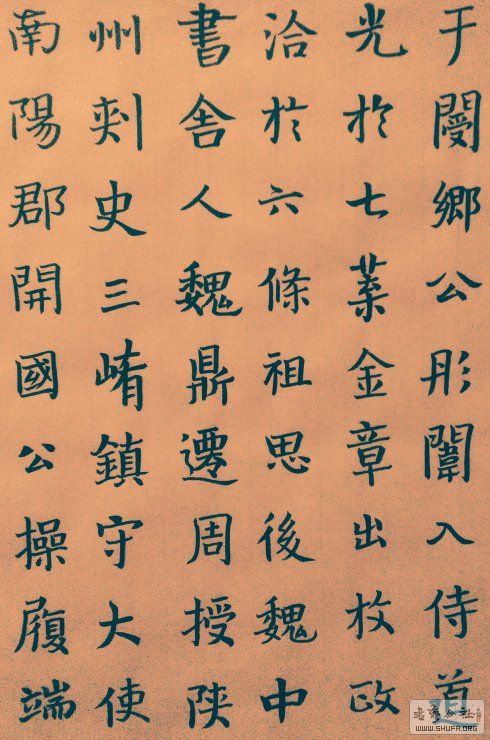 于閺鄉公彤闈入侍首
光於七葉金章出牧政
洽於六條祖思後魏中
書舍人魏鼎遷周授陝
州刺史三崤鎮守大使
南陽郡開國公操履端
WWW.SHUFA.ORG